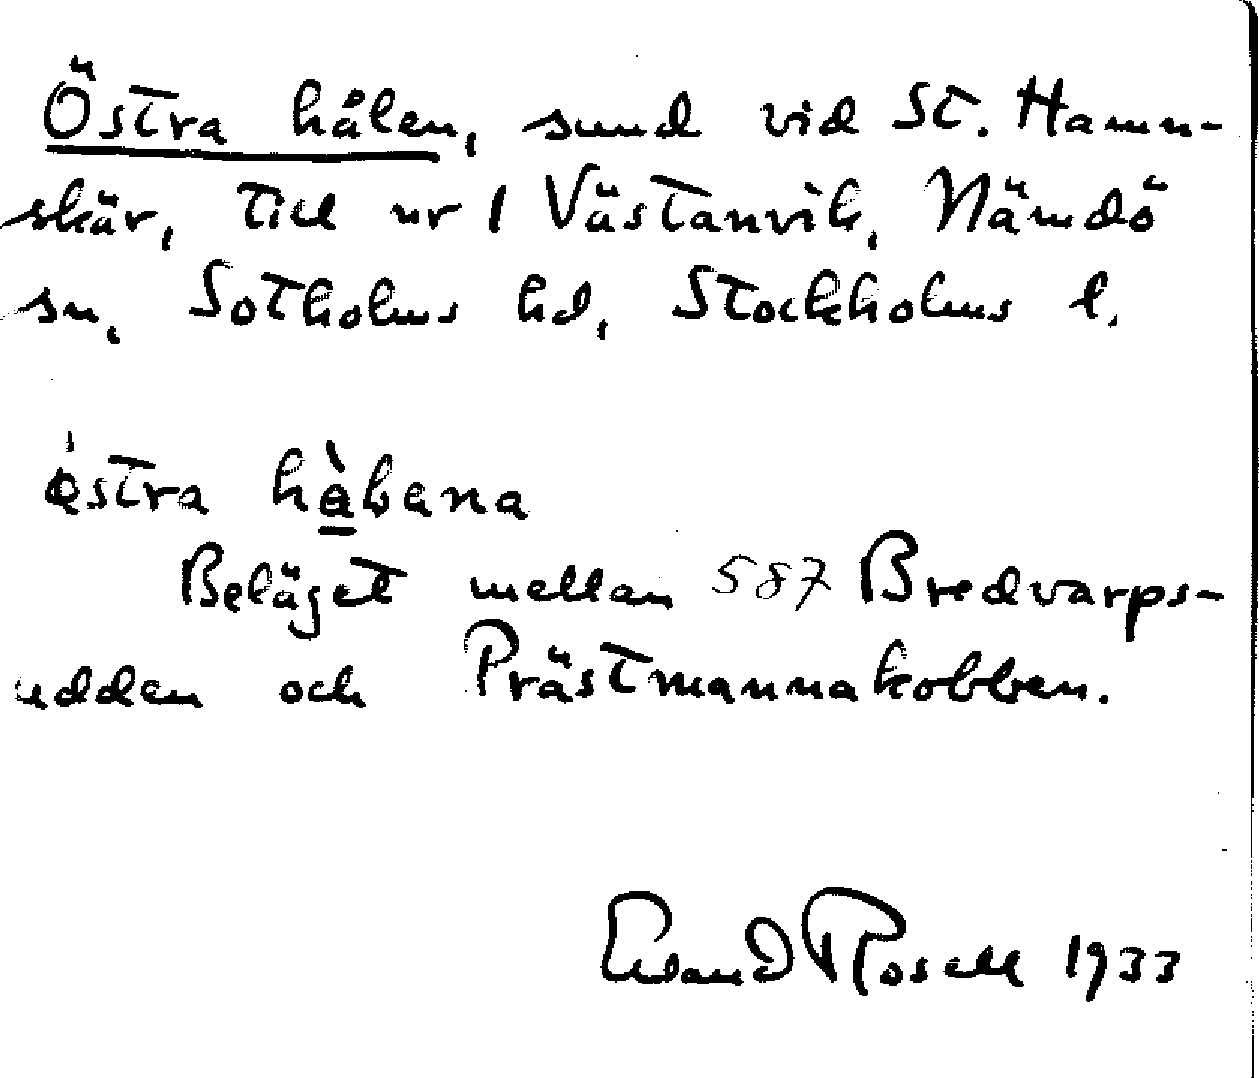 Östra hålen, sund vid St. Hamn-
skär, till nr 1 Västanvik, Nämdö
sn, Sotholms hd, Stockholms l.
östra hàlena
Beläget mellan 587 Bredvarps-
udden och Prästmannakobben.
Erland Rosell 1933